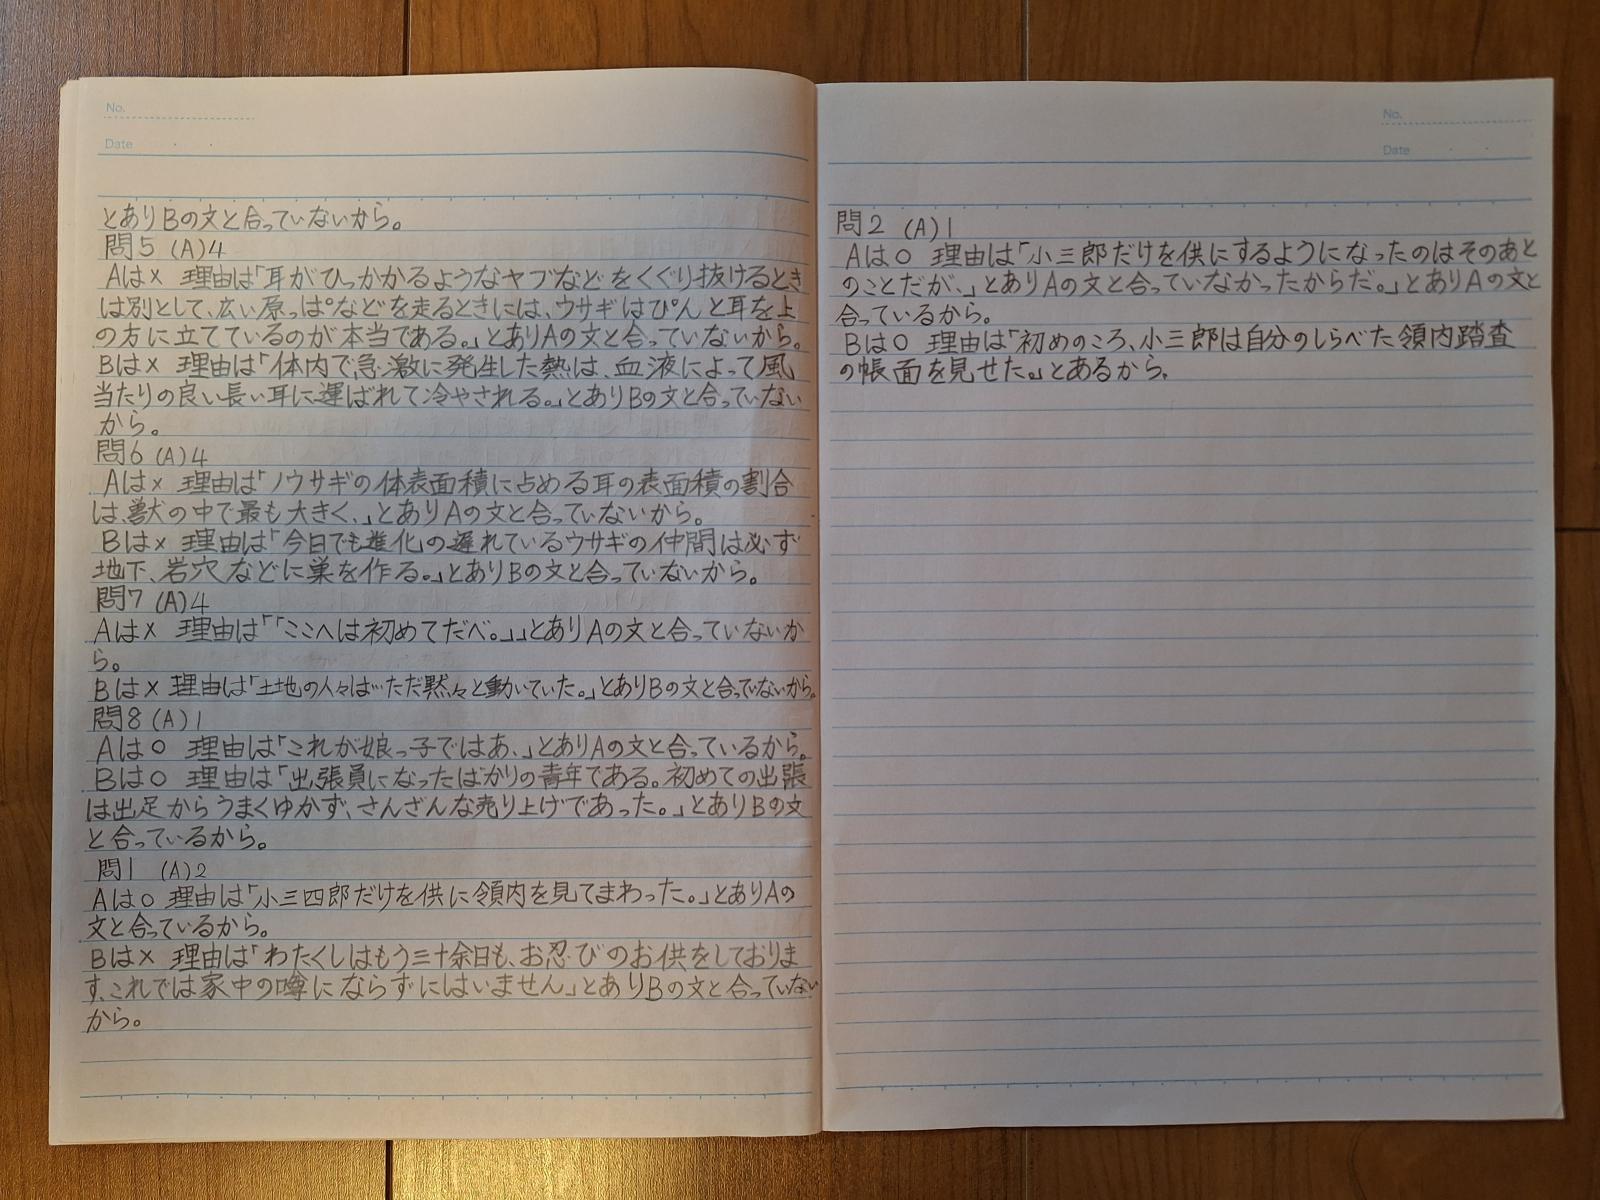 No.
Date
とありBの文と合っていないから。
問5 (A)4
Aは× 理由は「耳がひっかかるようなヤブなどをくぐり抜けるとき
は別として、広い原っぱなどを走るときには、ウサギはぴんと耳を上
の方に立てているのが本当である。」とありAの文と合っていないから。
Bは× 理由は「体内で急激に発生した熱は、血液によって風
当たりの良い長い耳に運ばれて冷やされる。」とありBの文と合っていない
から。
問6 (A)4
Aは× 理由は「ノウサギの体表面積に占める耳の表面積の割合
は、獣の中で最も大きく、」とありAの文と合っていないから。
Bは× 理由は「今日でも進化の遅れているウサギの仲間は必ず
地下、岩穴などに巣を作る。」とありBの文と合っていないから。
問7 (A)4
Aは× 理由は「「ここへは初めてだべ。」」とありAの文と合っていないか
ら。
Bは× 理由は「土地の人々は…ただ黙々と動いていた。」とありBの文と合っていないから。
問8 (A)1
Aは○ 理由は「これが娘っ子ではあ、」とありAの文と合っているから。
Bは○ 理由は「出張員になったばかりの青年である。初めての出張
は出足からうまくゆかず、さんざんな売り上げであった。」とありBの文
と合っているから。
問1 (A)2
Aは○ 理由は「小三四郎だけを供に領内を見てまわった。」とありAの
文と合っているから。
Bは× 理由は「わたくしはもう三十余日も、お忍びのお供をしておりま
す、これでは家中の噂にならずにはいません」とありBの文と合っていない
から。
No.
Date
問2 (A)1
Aは○ 理由は「小三郎だけを供にするようになったのはそのあと
のことだが、」とありAの文と合っていなかったからだ。」とありAの文と
合っているから。
Bは○ 理由は「初めのころ、小三郎は自分のしらべた領内踏査
の帳面を見せた。」とあるから。